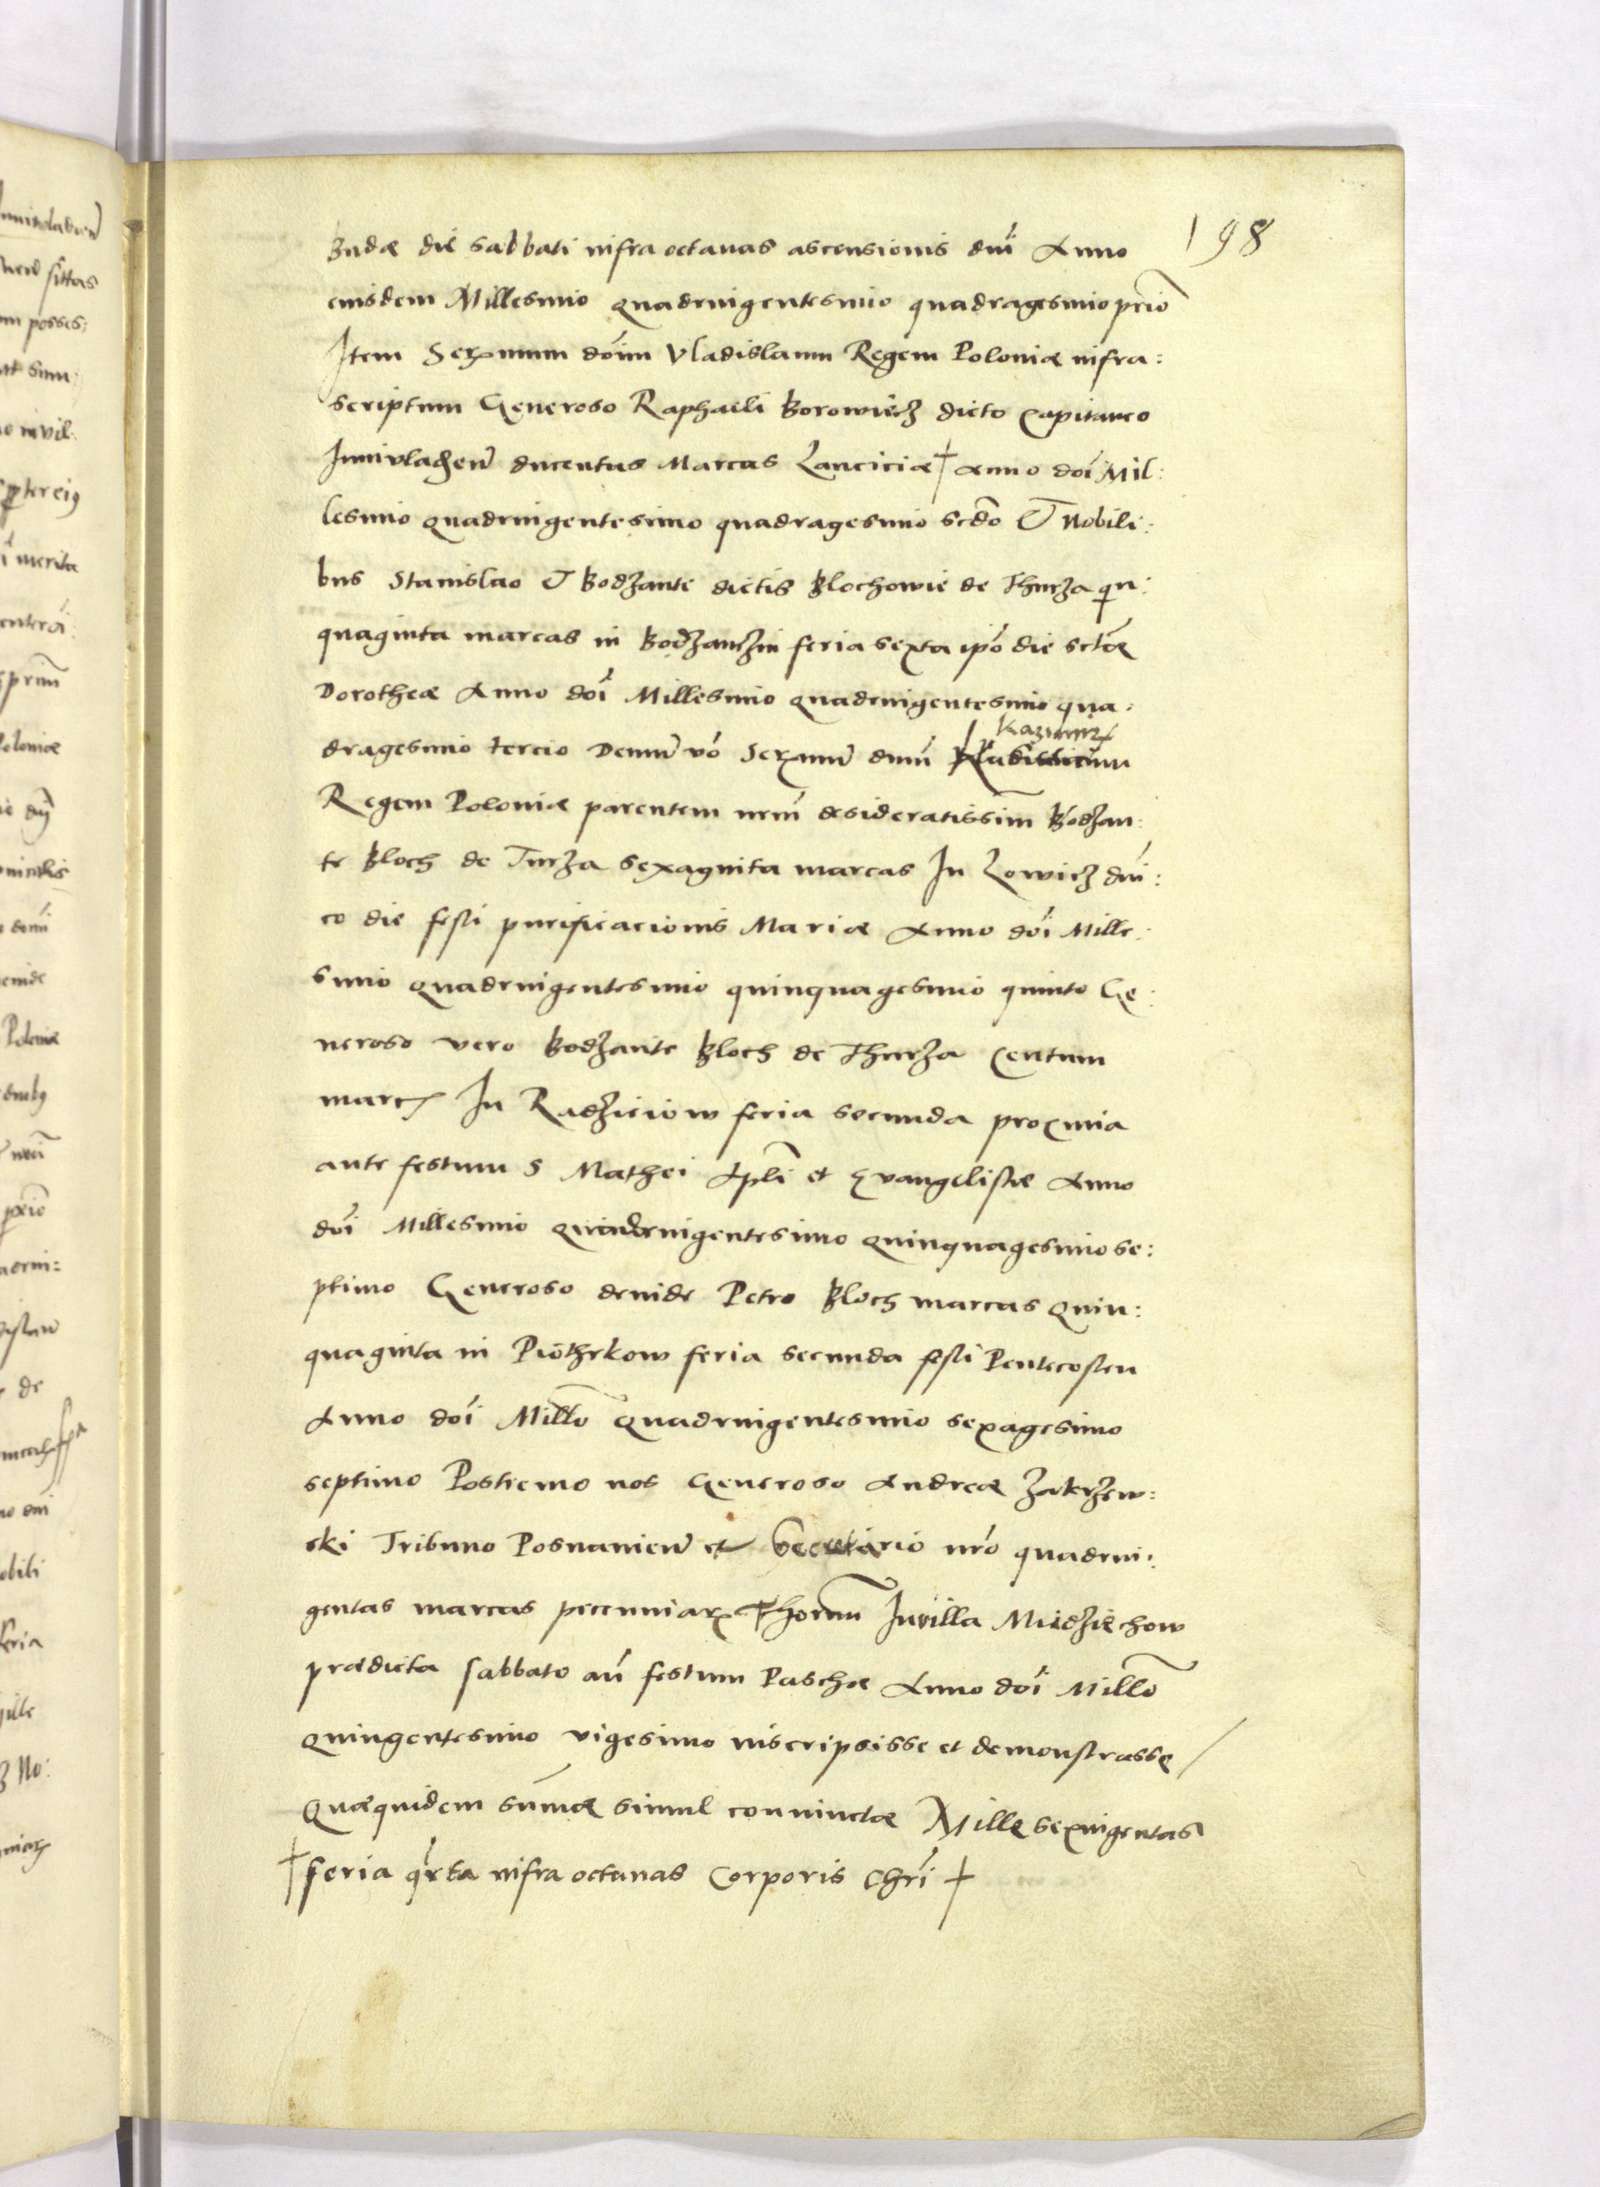 198
Budæ die sabbati infra octauas ascensionis dni Anno
eiusdem Millesimo quadringentesimo quadragesimo primo
Item Serenmum doim Vladislaum Regem Poloniæ infra:
scriptum Generoso Raphaeli Borowiecz dicto Capitaneo
Iuniuladien ducentas Marcas Lanciciæ † Anno doi Mil:
lesimo quadringentesimo quadragesimo scdo & Nobili:
bus Stanislao & Bodzante dictis Blochowie de Thurza qui:
quaginta marcas in Bodzanczin feria sexta ipo die sctæ
Dorotheæ Anno doi Millesimo quadringentesimo qua:
Kazimir
dragesimo tercio Demum vo Serenmum dnm
Regem Poloniæ parentem nrm desideratissim Bodzan:
te Bloch de Turza sexaginta marcas In Lowicz dni:
co die festi purificacionis Mariæ Anno doi Mille:
simo quadringentesimo quinquagesimo quinto Ge:
neroso vero Bodzante Bloch de Thurza Centum
marc In Radzieiow feria secunda proxima
ante festum S Mathei Apli et Evangelistæ Anno
doi Millesimo quadringentesimo quinquagesimo se:
ptimo Generoso deinde Petro Bloch marcas quin:
quaginta in Piothrkow feria secunda festi Pentecosten
Anno doi Millo quadringentesimo sexagesimo
septimo Postremo nos Generoso Andreæ Zakrzew:
ski Tribuno Posnanien et Secretario nro quadrin:
gentas marcas pecuniar In villa Miedziechow
prædicta sabbato an festum Paschæ Anno doi Millo
quingentesimo vigesimo inscripsisse et demonstrasse /
Quæquidem summæ simul coniunctæ Mille sexingentas
† feria qrta infra octauas Corporis Chri †